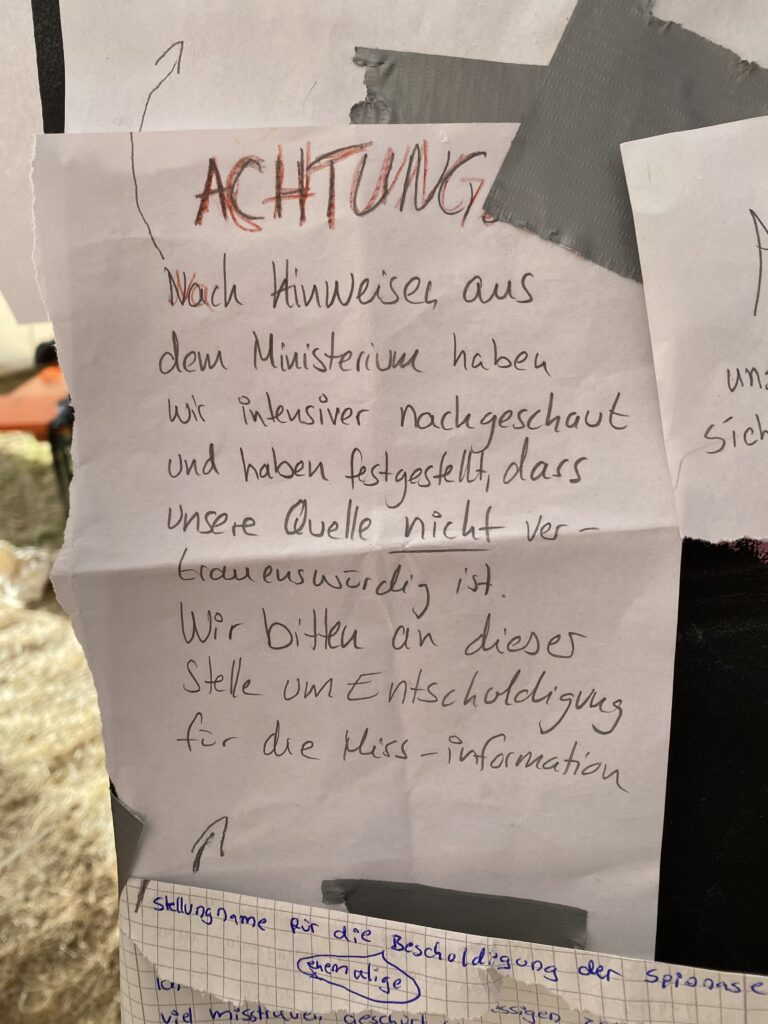 ACHTUNG
Nach Hinweisen aus
dem Ministerium haben
wir intensiver nachgeschaut
und haben festgestellt, dass
unsere Quelle nicht ver-
trauenswürdig ist.
Wir bitten an dieser
Stelle um Entschuldigung
für die Miss-information
un
sich
Stellungname für die Beschuldigung der Spionase
ehematige
viel misstrauen geschürt